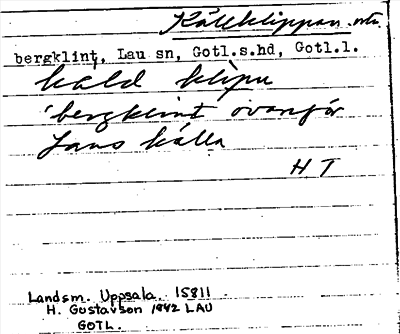 Källklippan
bergklint, Lau sn, Gotl.s.hd, Gotl.l.
kald klipu
'bergklint ovanför
Laus källa
H T
Landsm. Uppsala 15811
H. Gustavson 1942 LAU
GOTL.